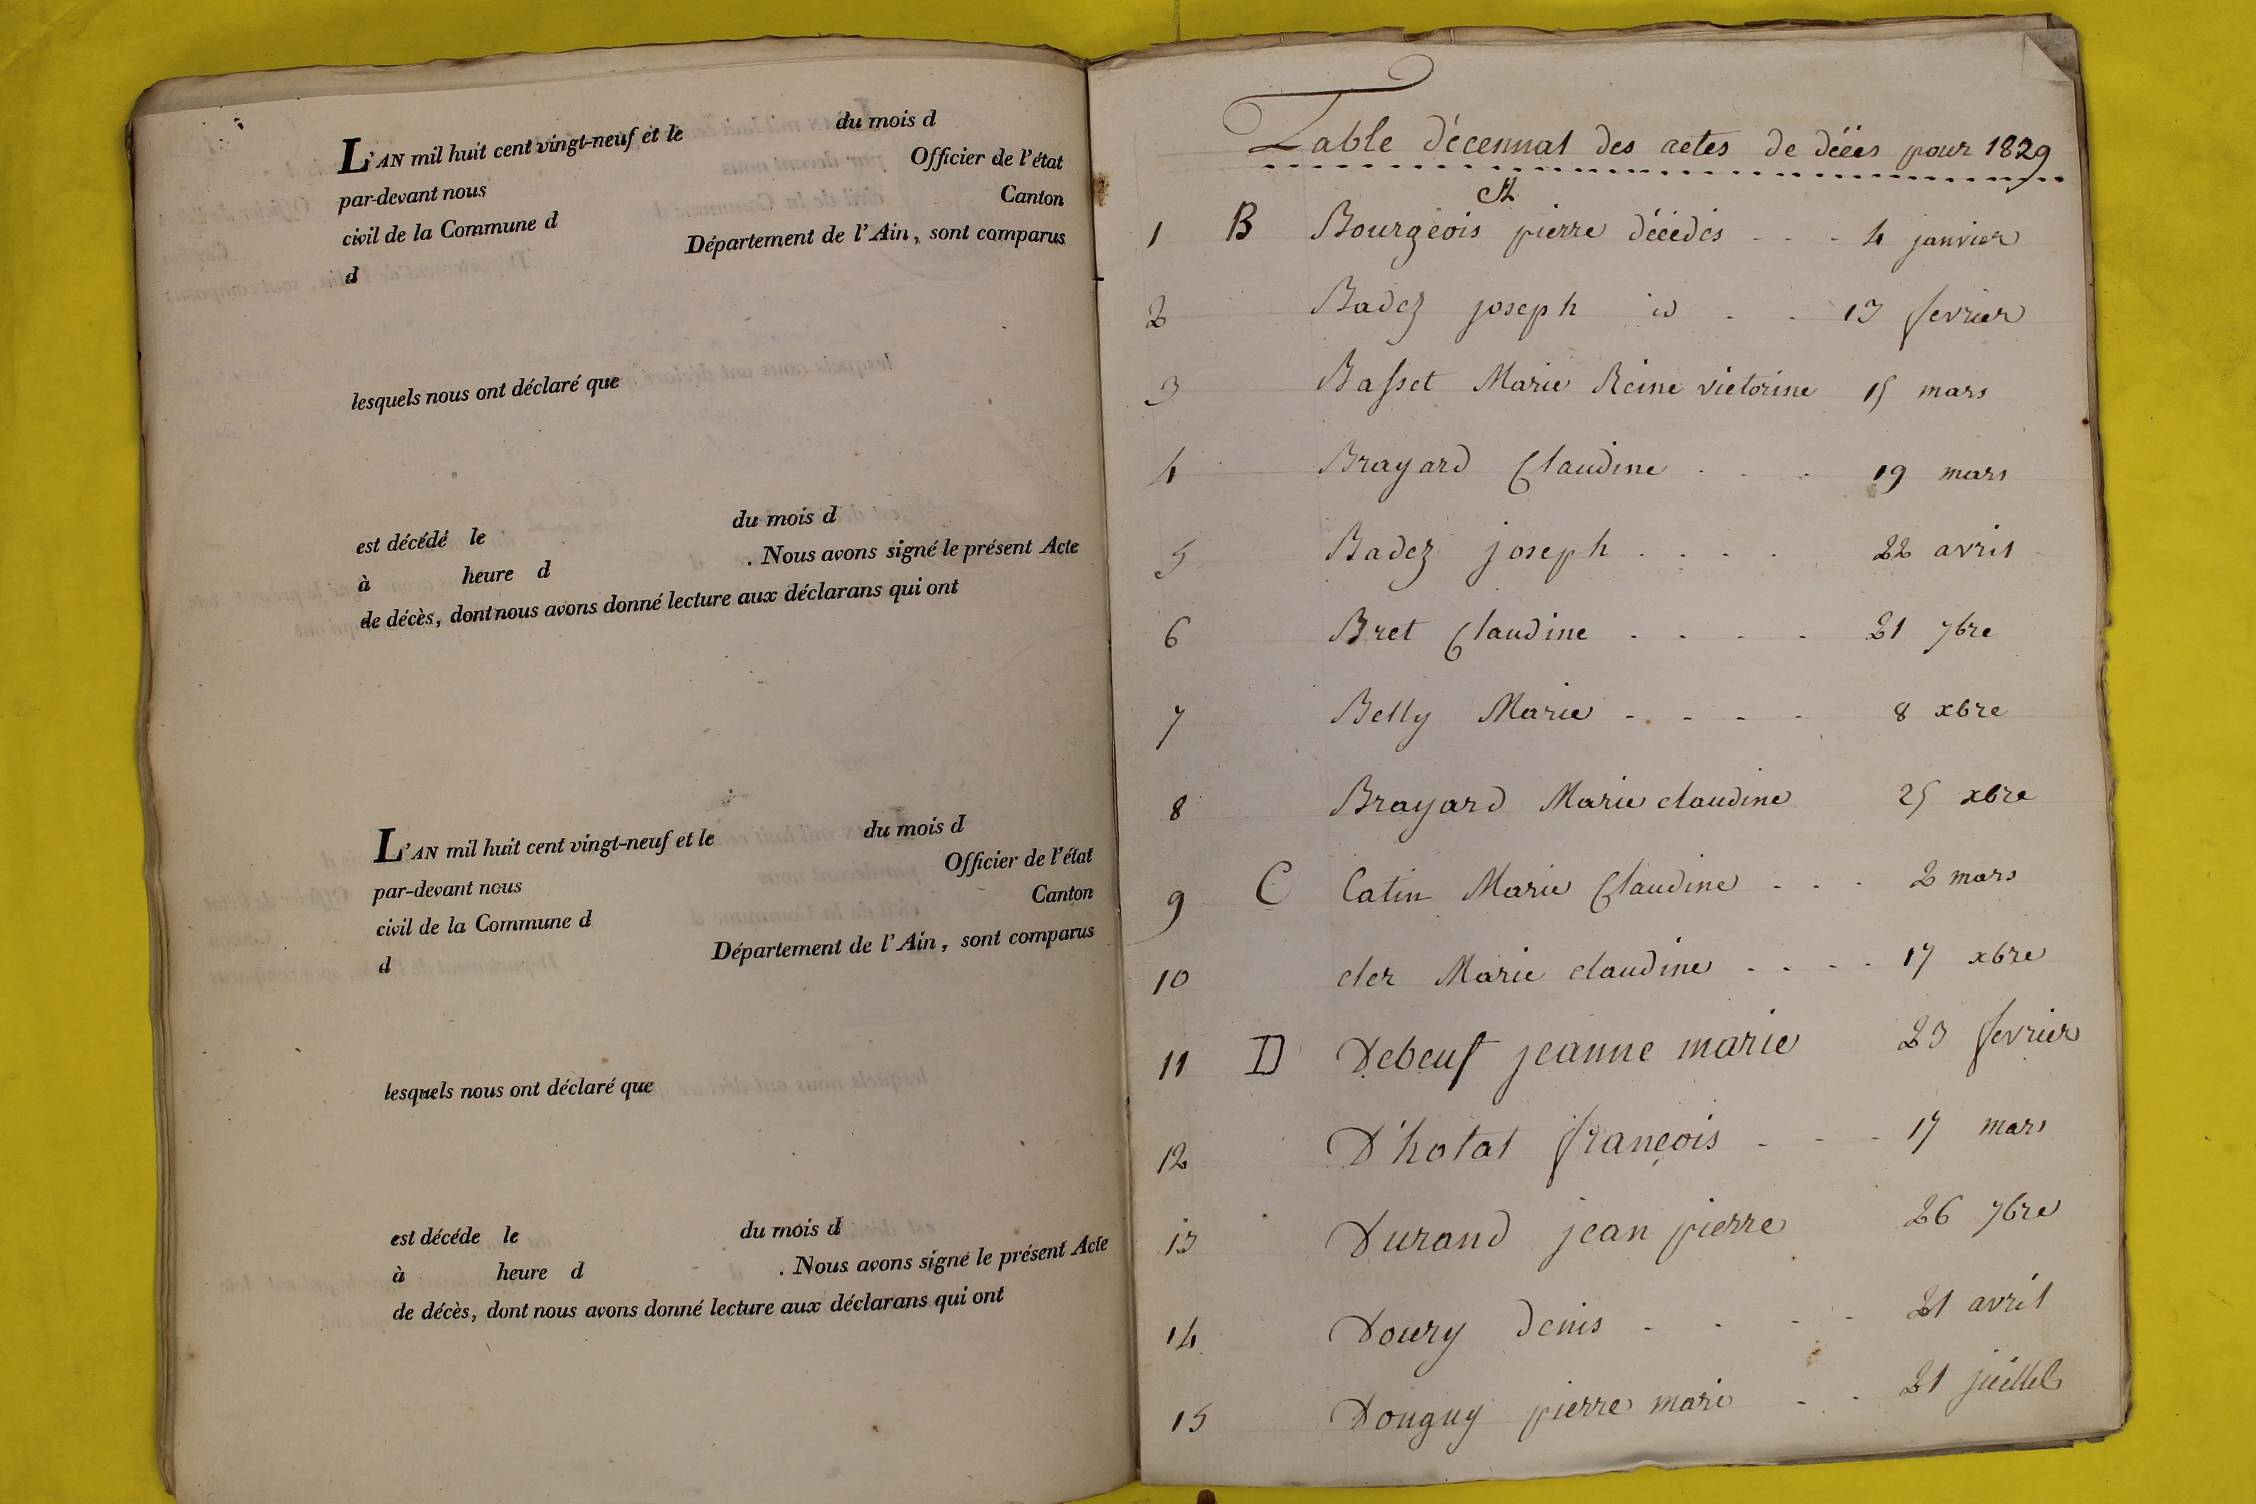 L'AN mil huit cent vingt-neuf et le du mois d
par-devant nous Officier de l'état
civil de la Commune d Canton
d Département de l'Ain, sont comparus
lesquels nous ont déclaré que
est décédé le du mois d
à heure d . Nous avons signé le présent Acte
de décès, dont nous avons donné lecture aux déclarans qui ont
L'AN mil huit cent vingt-neuf et le du mois d
par-devant nous Officier de l'état
civil de la Commune d Canton
d Département de l'Ain, sont comparus
lesquels nous ont déclaré que
est décéde le du mois d
à heure d . Nous avons signé le présent Acte
de décès, dont nous avons donné lecture aux déclarans qui ont
Table décennal des actes de déces pour 1829
1 B Bourgeois pierre décédés 4 janvier
2 Badez joseph id 13 fevrier
3 Basset Marie Reine victorine 15 mars
4 Brayard Claudine 19 mars
5 Badez joseph 22 avril
6 Bret Claudine 21 7bre
7 Belly Marie 8 xbre
8 Brayard Marie claudine 25 xbre
9 C Catin Marie Claudine 2 mars
10 cler Marie claudine 17 xbre
11 D Debeuf jeanne marie 23 fevrier
12 D'hotal françois 17 mars
13 Durand jean pierre 26 7bre
14 Doury denis 21 avril
15 Douguy pierre marie 21 juillet